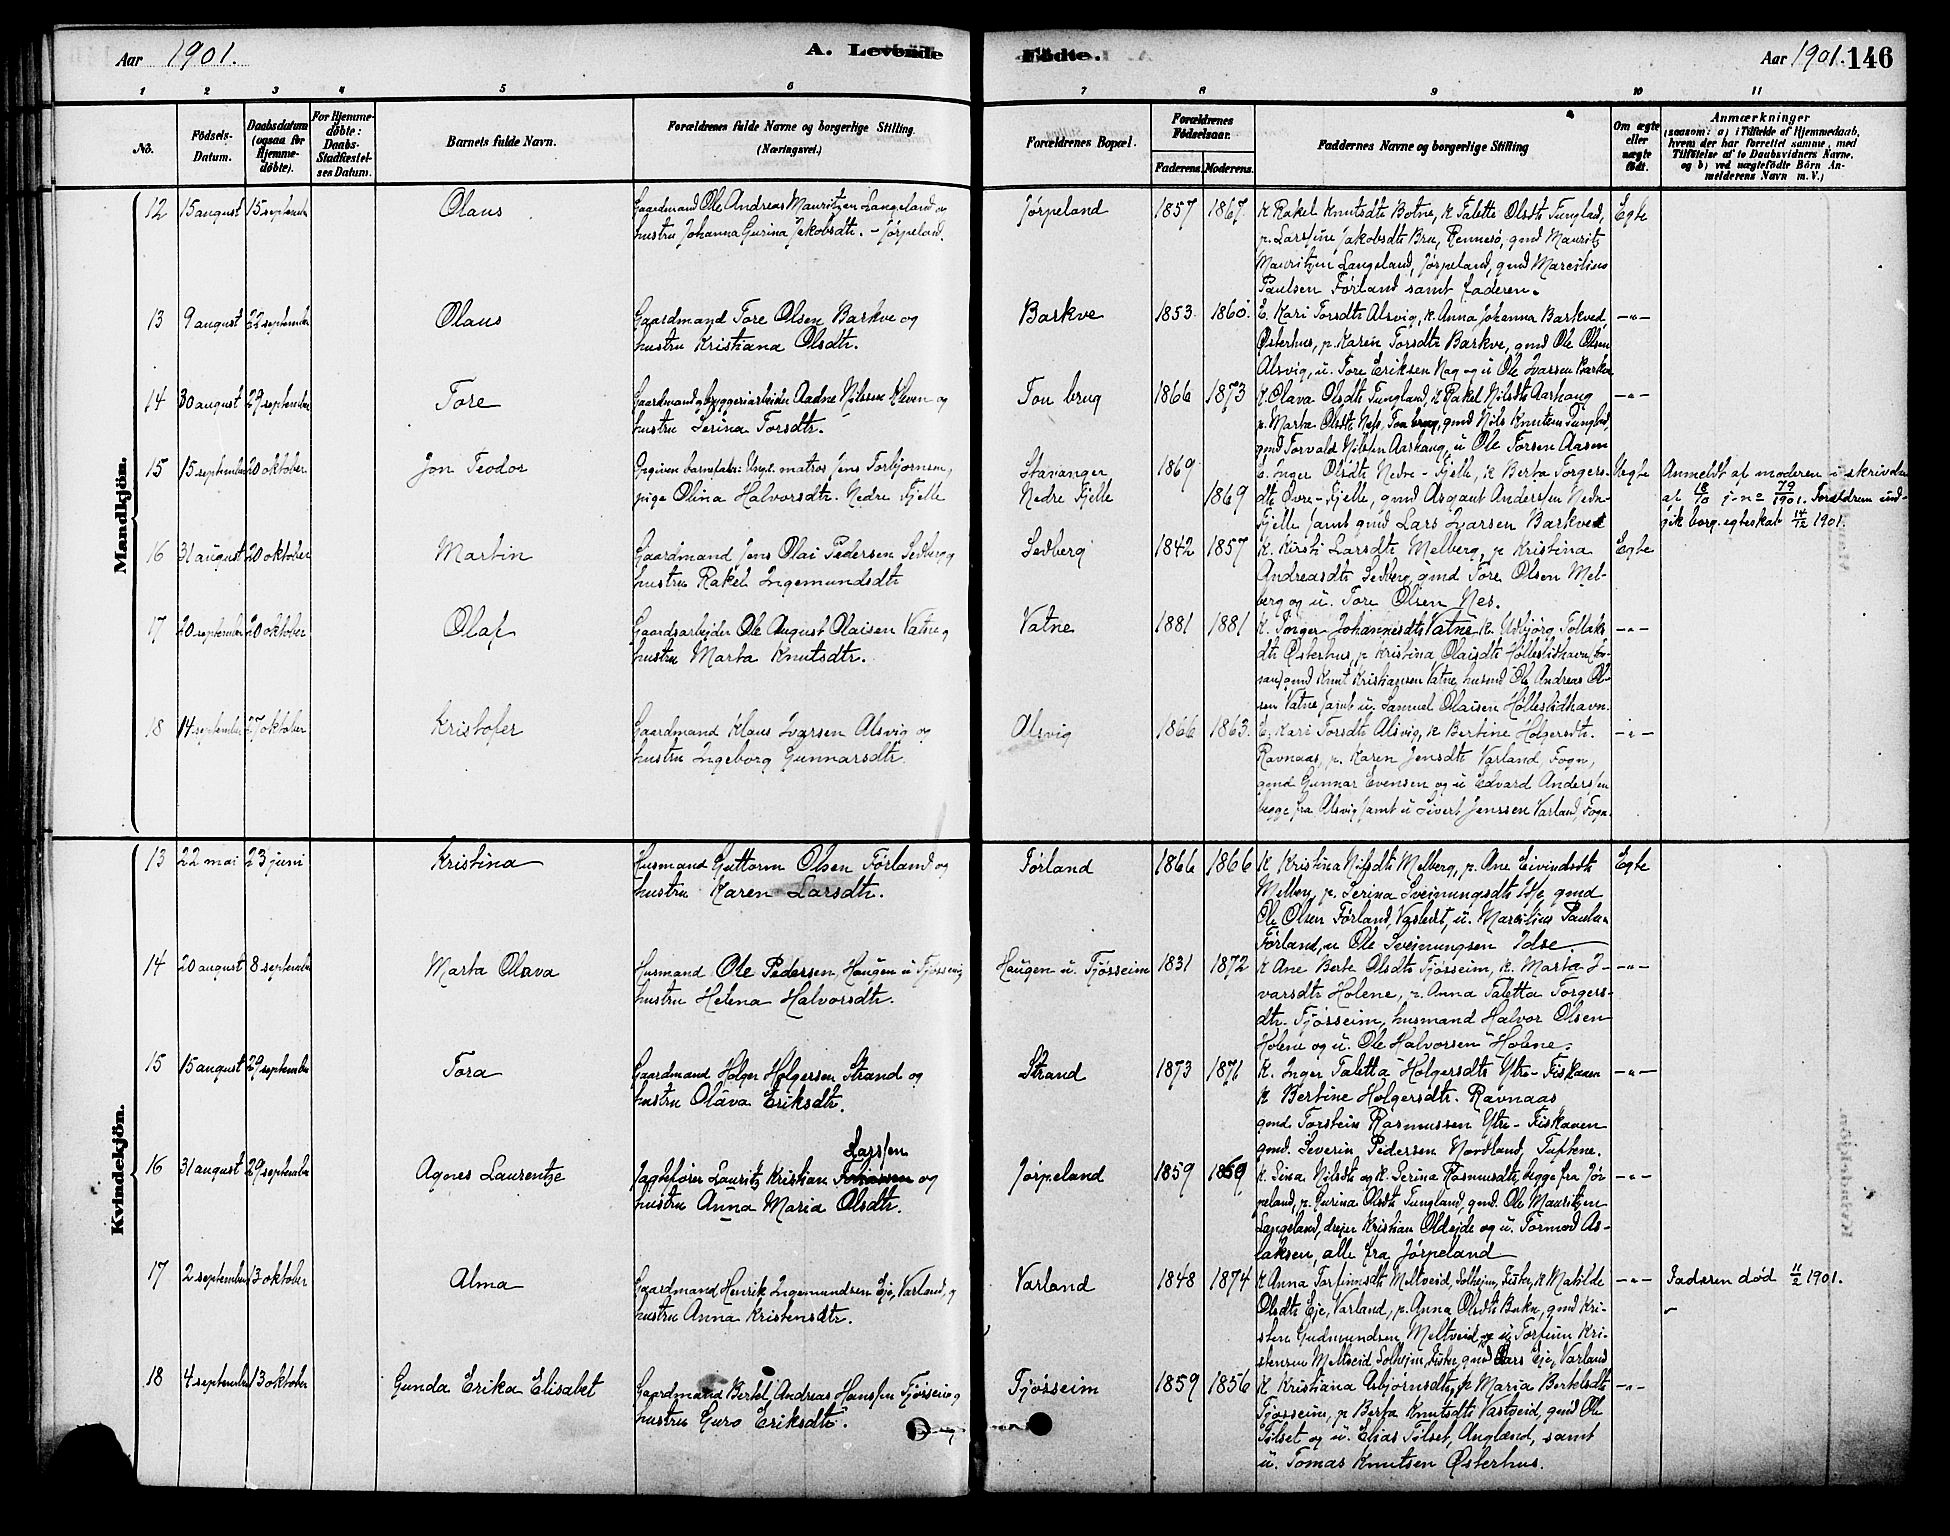 Aar 1901.
A. Levende
Födte.
Aar 1901. 146
1 2 3 4 5 6 7 8 9 10 11
No.
Födsels-Datum.
Daabsdatum (ogsaa for Hjemmedöbte).
For Hjemmedöbte: Daabs-Stadfæstelses Datum.
Barnets fulde Navn.
Forældrenes fulde Navne og borgerlige Stilling. (Næringsvei.)
Forældrenes Bopæl.
Forældrenes Födselsaar.
Faderens. Moderens.
Faddernes Navne og borgerlige Stilling
Om ægte eller uægte födt.
Anmærkninger
(saasom: a) i Tilfælde af Hjemmedaab, hvem der har forrettet samme, med Tilföielse af to Daabsvidners Navne, og b) ved uægtefödte Börn Anmelderens Navn m. V.)
Mandkjön.
12 15 august 15 septembr Olaus
Gaardmand Ole Andreas Mauritzen Langeland og
hustru Johanna Gurina Jakobsdtr. - Jørpeland.
Jørpeland 1857 1867.
K. Rakel Knutsdtr Botne, K. Taletta Olsdtr Tungland,
p. Larsine Jakobsdtr Bru, Rennesø, gmd Mauritz
Mauritzen Langeland, Jørpeland, gmd Marcelius
Paulsen Førland samt faderen.
Egte
13 9 august 22 septembr Olaus
Gaardmand Tore Olsen Barkve og
hustru Kristiana Olsdtr.
Barkve 1853. 1860.
E. Kari Torsdtr Alsvig, K. Anna Johanna Barkved,
Østerhus, p. Karen Torsdtr Barkve, gmd Ole Olsen
Alsvig, u. Tore Eriksen Nag og u Ole Ivarsen Barkve
-"-
14 30 august 29 septembr Tore
Gaardmand og bryggeriarbeider Aadne Nilssen Kleven og
hustru Serina Torsdtr.
Tou brug 1866 1873
K. Olava Olsdtr Tungland, K. Rakel Nilsdtr Aarhaug
p. Marta Olsdtr Ness, Tou brug, gmd Nils Knutsen Tungland
gmd Torvald Nilsen Aarhaug, u Ole Torsen Aasen
-"-
15 15 septembr 20 oktober. Jon Teodor
Opgiven barnefader: Ungk. matros Jens Torbjørnsen,
pige Olina Halvorsdtr. Nedre Fjelle
Stavanger
Nedre Fjelle
1869
1869
E. Inger Olsdtr Nedre-Fjelle, K Berta Torgers-
dtr Øvre-Fjelle, gmd Asgaut Anderssen Nedre
Fjelle samt gmd Lars Ivarsen Barkved
Uegte
Anmeldt af moderen i skrivelse
af 18/10 j-n= 79/1901. Forældrene ind-
gik borg. egteskab 14/12 1901.
16 31 august 20 oktober Martin
Gaardmand Jens Olai Pedersen Sedberg og
hustru Rakel Ingemundsdtr
Sedberg 1842 1857
K. Kirsti Larsdtr Melberg, p Kristina
Andreasdtr Sedberg, gmd Tore Olsen Mel-
berg og u. Tore Olsen Nes.
Egte
17 20 septembr 20 oktober Olaf
Gaardsarbejder Ole August Olaisen Vatne og
hustru Marta Knutsdtr.
Vatne 1881 1881
K. Inger Johannesdtr Vatne K. Udbjørg Tollaks
dtr Østerhus, p. Kristina Olaisdtr Hølleslidhavn
gmd Knut Kristiansen Vatne, husmd Ole Andreas Ol-
sen Vatne samt u. Samuel Olaisen Hølleslidhavn.
-"-
18 14 septembr 27 oktober Kristofer
Gaardmand Klaus Ivarsen Alsvig og
hustru Ingeborg Gunnarsdtr.
Alsvig 1866 1863.
E. Kari Torsdtr Alsvig, K Bertine Holgersdtr.
Ravnaas, p. Karen Jensdtr Varland, Fogn,
gmd Gunnar Evensen og u Edvard Anderssen
begge fra Alsvig samt u Sivert Jenssen Varland, Fogn.
-"-
Kvindekjön.
13 22 mai 23 juni Kristina
Husmand Guttorm Olsen Førland og
hustru Karen Larsdtr.
Førland 1866 1866
K Kristina Nilsdtr Melberg, p. Ane Eivindsdtr
Melberg, p. Serina Sveinungsdtr Idse, gmd
Ole Olsen Førland, u. Marcelius Paulsen
Førland, u Ole Sveinungsen Idse
Egte
14 20 august 8 septembr Marta Olava
Husmand Ole Pedersen, Haugen u Tjøsseim og
hustru Helena Halvorsdtr.
Haugen u. Tjøsseim 1831 1872
K Ane Berte Olsdtr Tjøsseim, K. Marta I-
varsdtr Holene, p. Anna Taletta Torgers-
dtr. Tjøsseim, husmand Halvor Olsen
Holene og u. Ole Halvorsen Holene.
-"-
15 15 august 29 septembr Tora
Gaardmand Holger Holgersen Strand og
hustru Olava Eriksdtr.
Strand 1873 1871
K. Inger Taletta Holgersdtr Ytre-Fiskaaen
K Bertine Holgersdtr. Ravnaas
gmd. Torstein Rasmussen Ytre-Fiskaaen
gmd. Severin Pedersen Nordland, Tuftene.
-"-
16 31 august 29 septembr Agnes Laurentze
Larssen
Jagtefører Lauritz Kristian og
hustru Anna Maria Olsdtr.
Jørpeland 1859 1869
K. Sina Nilsdtr og K. Serina Rasmusdtr, begge fra Jør
peland, p. Gurina Olsdtr Tungland, gmd. Ole Mauritzen
Langeland, drejer Kristian Oldejde og u. Tormod As-
laksen, alle fra Jørpeland
-"-
17 2 septembr 13 oktober Alma
Gaardmand Henrik Ingemundsen Eje, Varland, og
hustru Anna Kristensdtr.
Varland 1848 1874
K Anna Torfinnsdtr Meltveid, Solheim, Fister, K Matilde
Olsdtr Eje, Varland, p. Anna Olsdtr Bøkn, gmd Kri-
sten Gudmundsen, Meltveid og u. Torfinn Kri-
stensen Meltveid, Solheim, Fister, gmd Lars Eje, Varland
-"-
Faderen død 11/2 1901.
18 4 septembr 13 oktober Gunda Erika Elisabet
Gaardmand Bertel Andreas Hanssen Tjøsseim og
hustru Guro Eriksdtr.
Tjøsseim 1859 1856
K Kristiana Asbjørnsdtr, p Maria Bertelsdtr
Tjøsseim, p Berta Knutsdtr Vastveid, gmd Ole
Tølset og u. Elias Tølset, Angland, samt
u. Tomas Knutsen Østerhus.
-"-